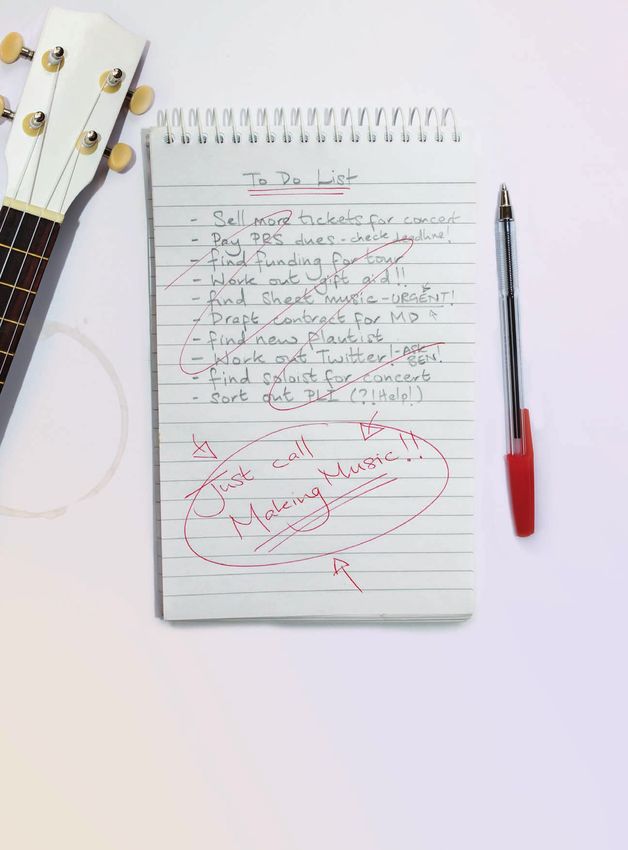 To Do List
- Sell more tickets for concert
- Pay PRS dues - check deadline!
- find funding for tour
- Work out gift aid!!
- find sheet music - URGENT!
- Draft contract for MD
- find new flautist
- Work out Twitter! - ASK BEN!
- find soloist for concert
- sort out PLI (?!Help!)
Just call
Making Music!!